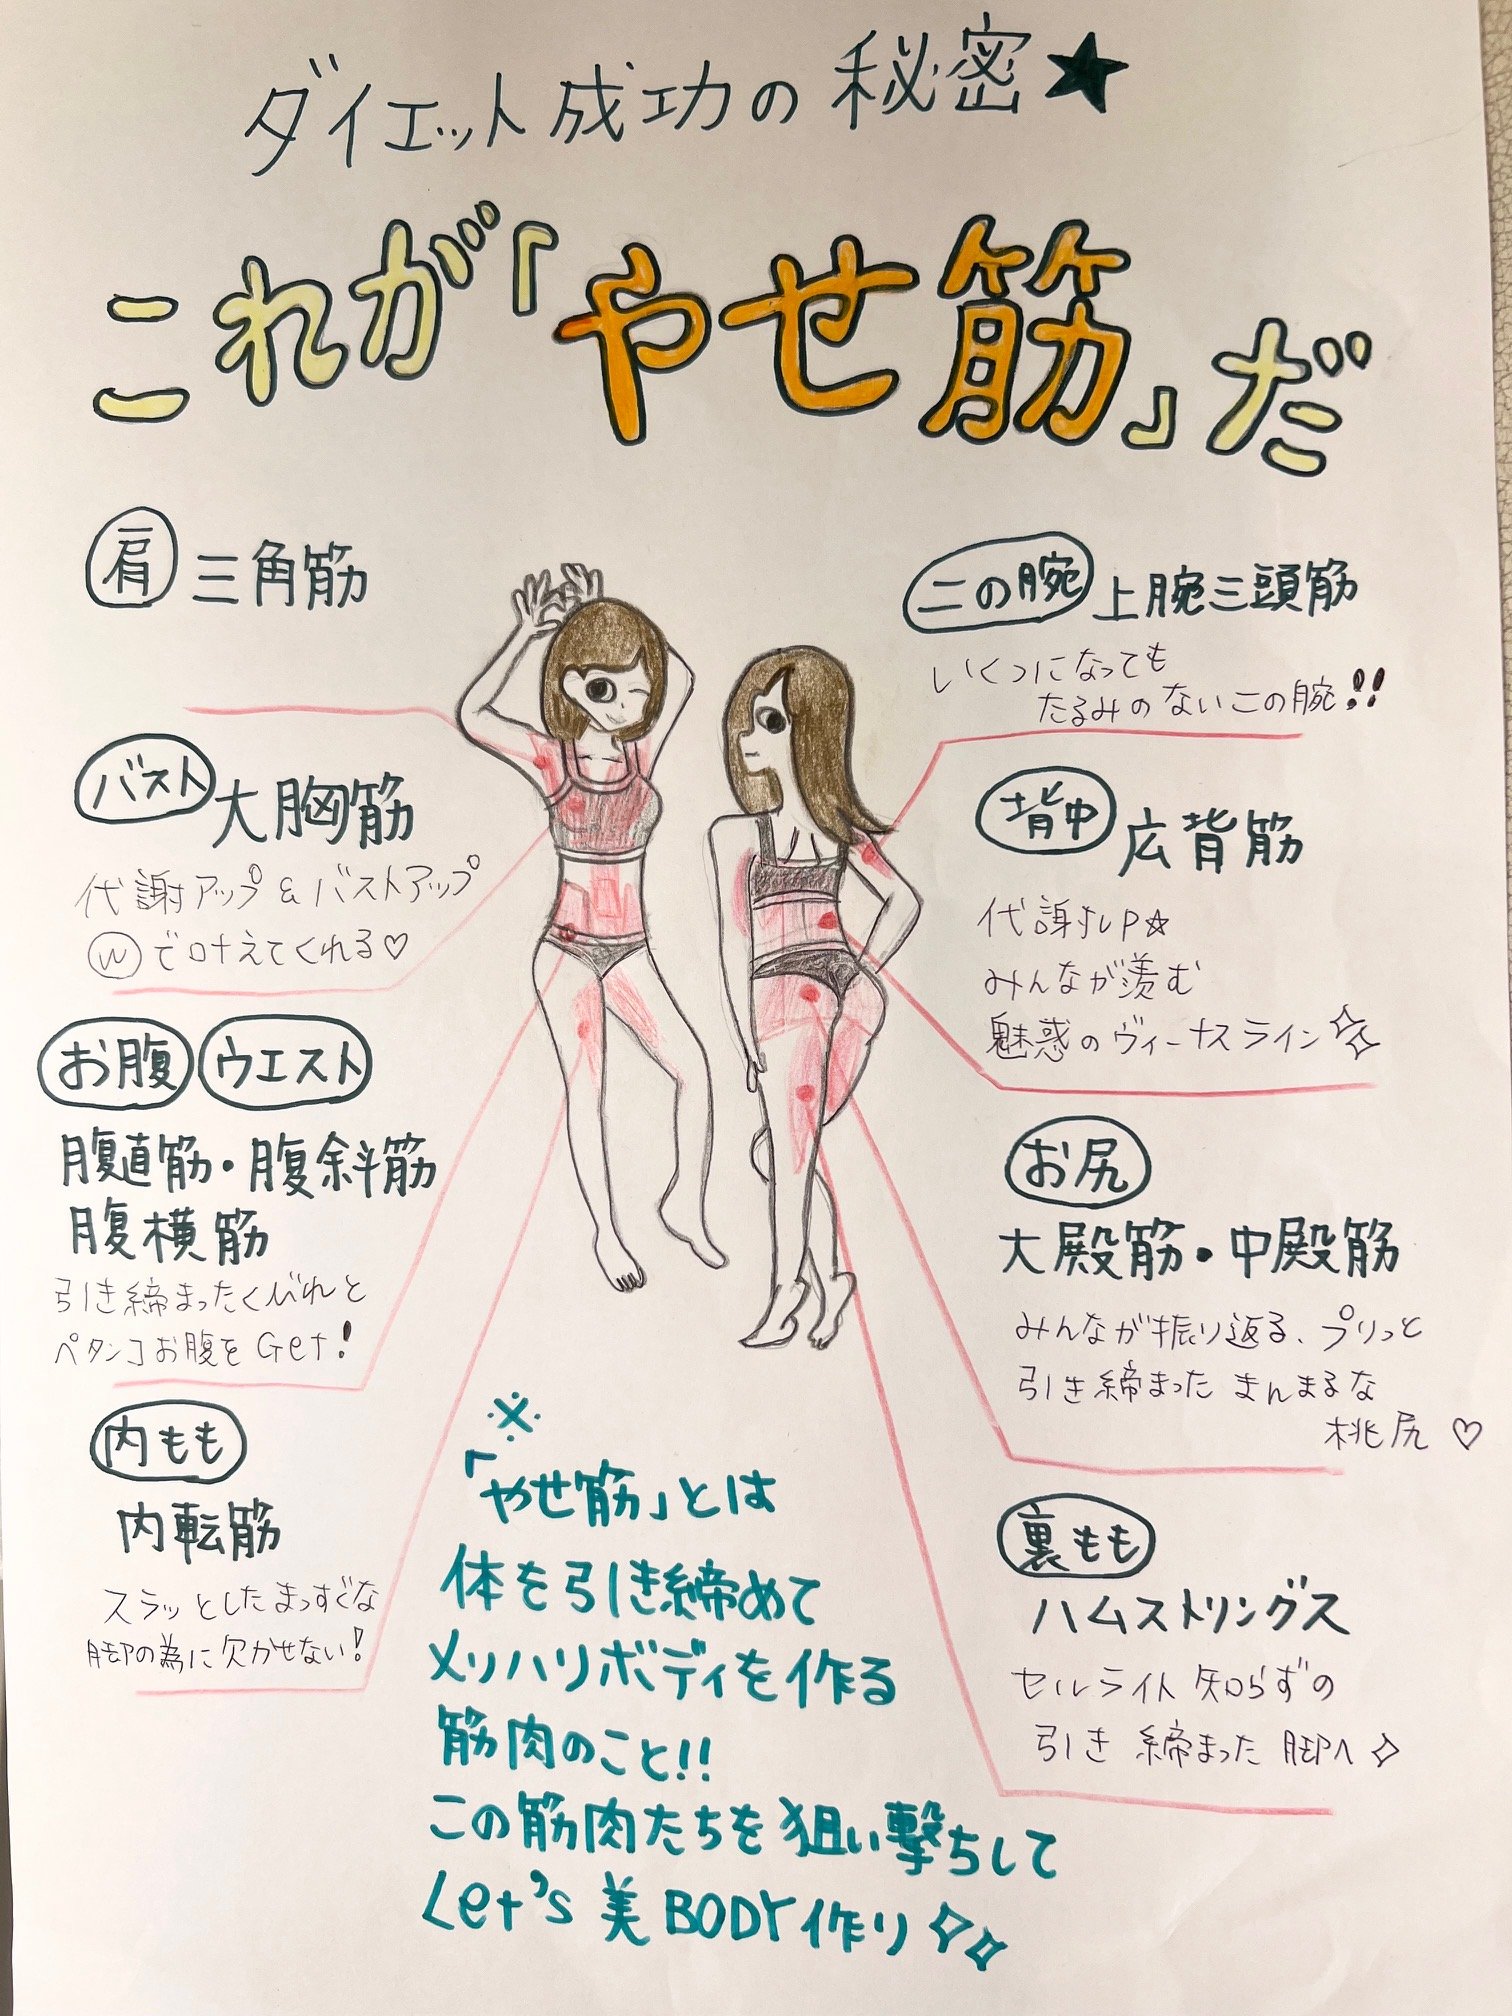 ダイエット成功の秘密★
これが「やせ筋」だ
肩 三角筋
バスト 大胸筋
代謝アップ&バストアップ
Wで叶えてくれる♡
お腹 ウエスト
腹直筋・腹斜筋
腹横筋
引き締まったくびれと
ペタンコお腹をGet!
内もも
内転筋
スラッとしたまっすぐな
脚の為に欠かせない!
二の腕 上腕三頭筋
いくつになっても
たるみのない二の腕!!
背中 広背筋
みんなが羨む
魅惑のヴィーナスライン
お尻
大殿筋・中殿筋
みんなが振り返る、プリっと
引き締まった まんまるな
桃尻♡
裏もも
ハムストリングス
セルライト知らずの
引き締まった脚へ
※
「やせ筋」とは
体を引き締めて
メリハリボディを作る
筋肉のこと!!
この筋肉たちを狙い撃ちして
Let's美BODY作り